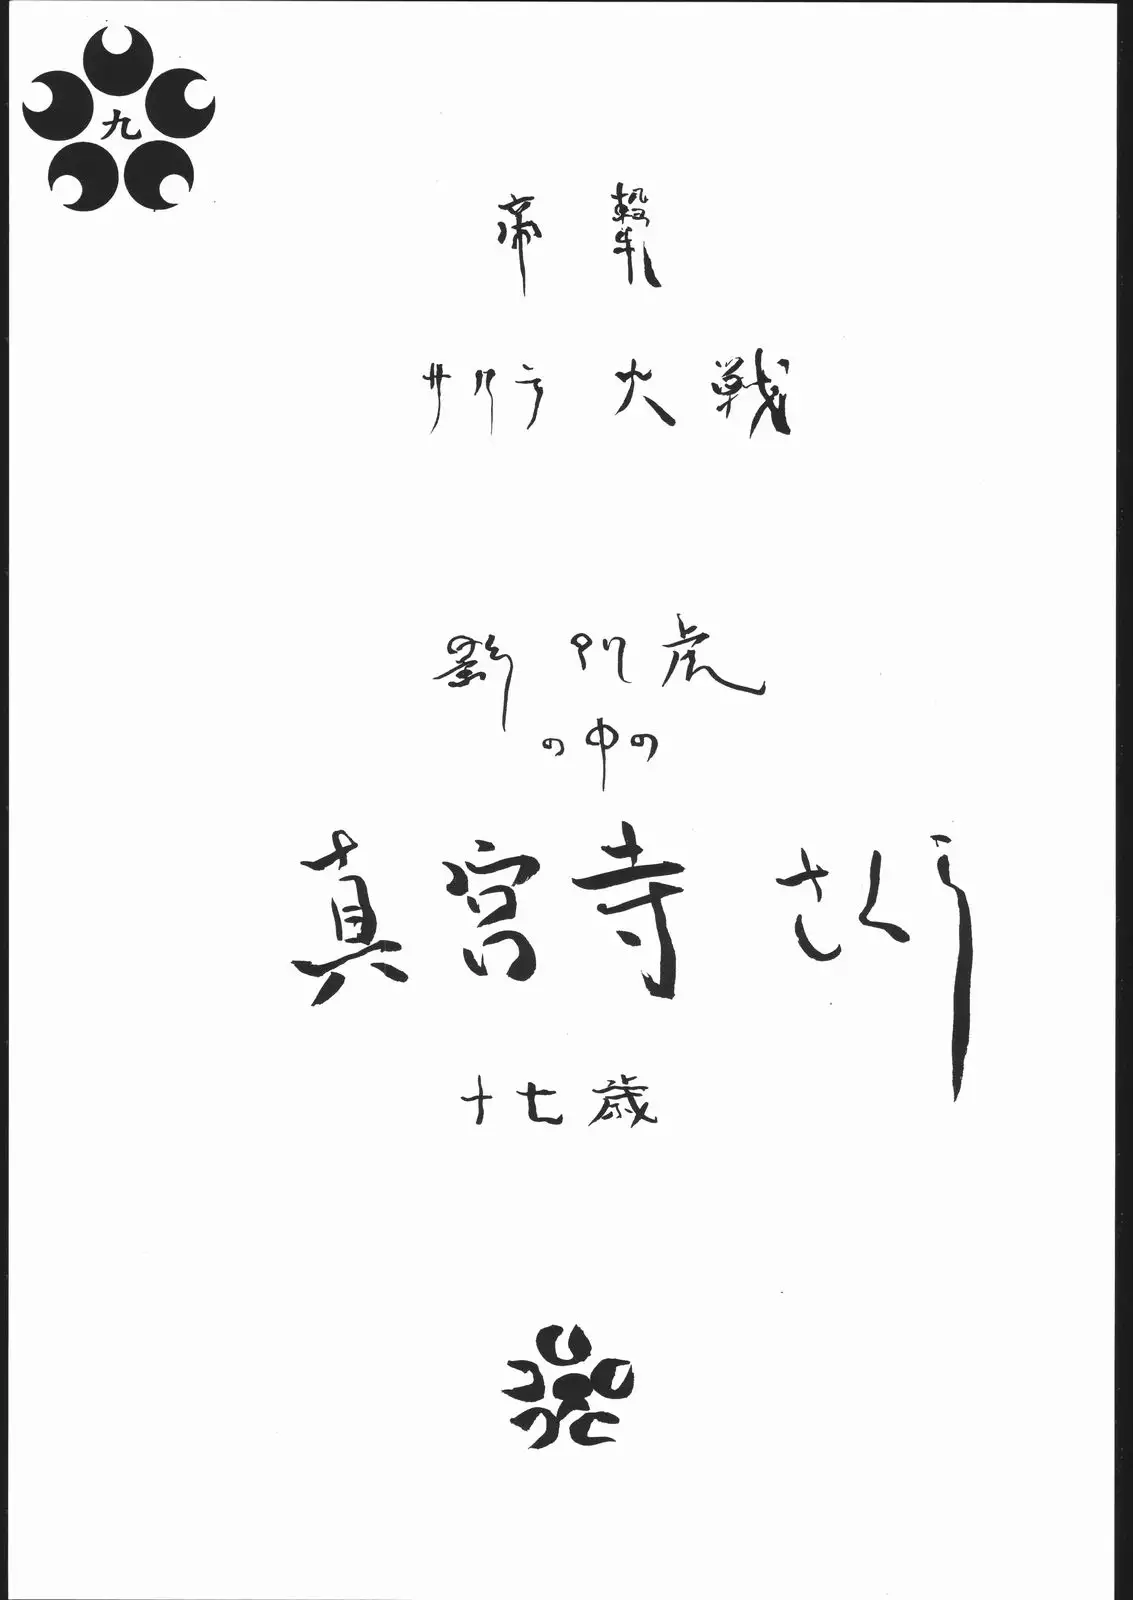 九
帝撃
サクラ大戦
劉 虎
の中の
真宮寺 さくら
十七歳